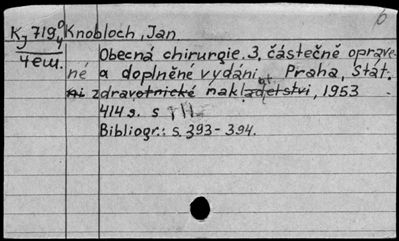 6
Kj 719 0/4 Knobloch, Jan
4 ex.
Obecná chirurgie. 3, částečně oprave-
né a doplněné vydání. Praha, Stát.
ni zdravotnické nakladatelství, 1953
414 s.
Bibliogr.: s. 393-394.